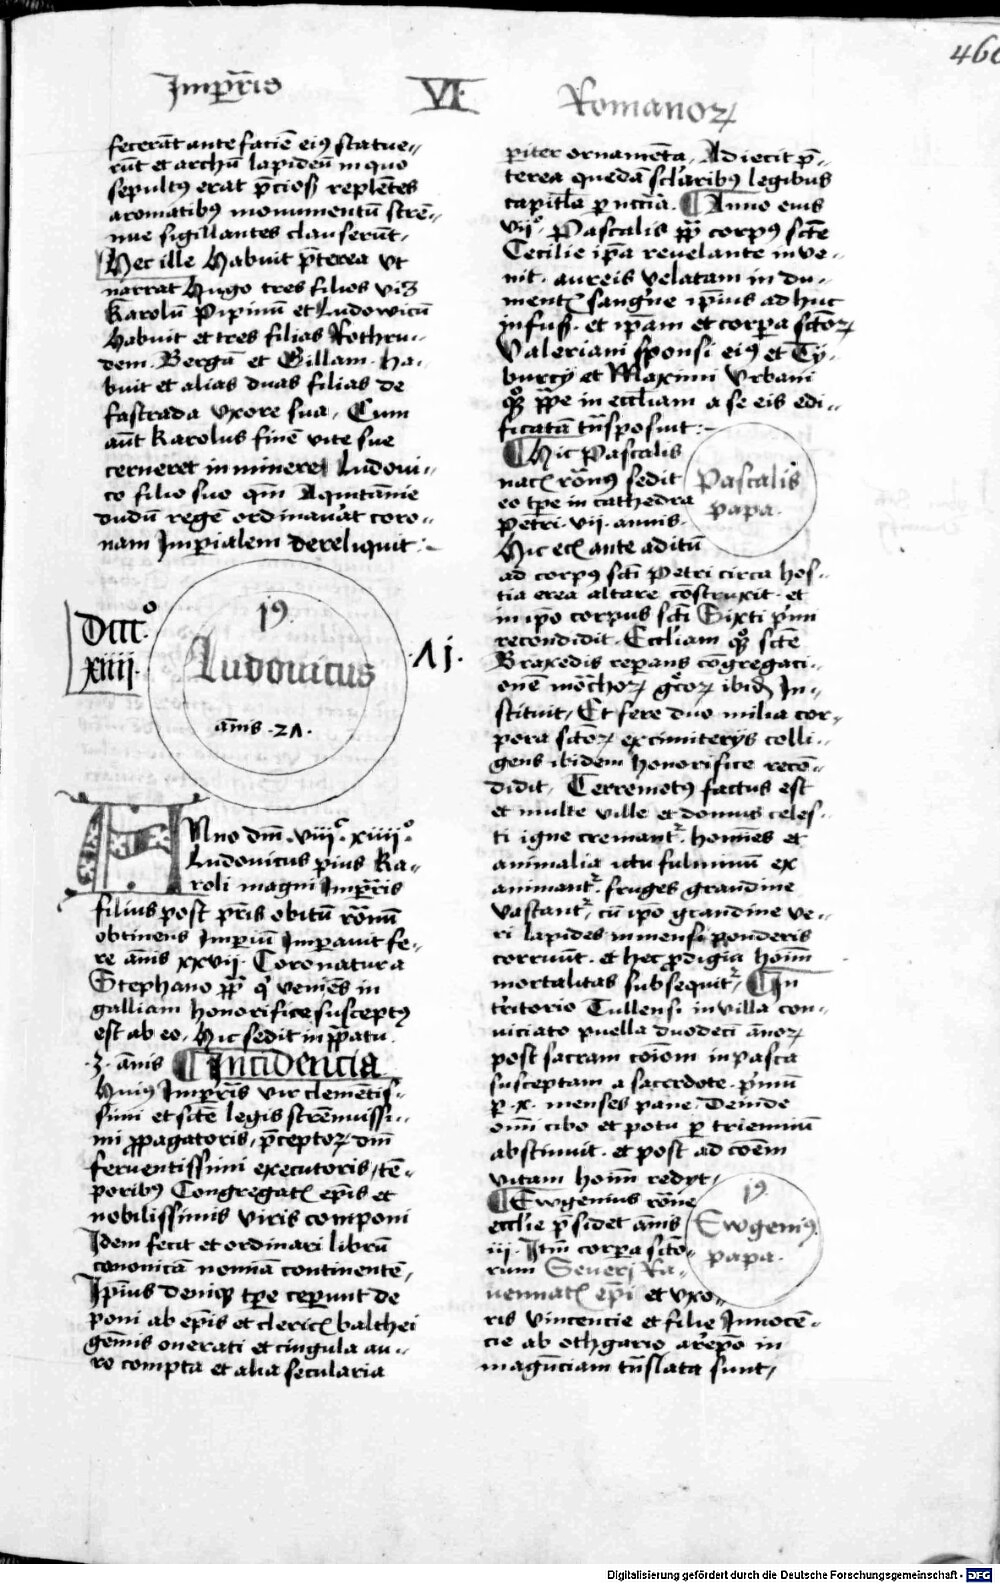 460
Imꝑr̄is VI Romanoꝝ
fecerāt ante faciē eiꝰ statue-
rūt et archū lapideū in quo
sepultꝰ erat p̄ciosꝭ replētes
aromatibꝰ monumentū strē-
nue sigillantes clauserūt.
Hec ille Habuit p̄terea vt
narrat Hugo tres filios viꝫ
Karolū Pipinū et Ludowicū
Habuit et tres filias Rothru-
dem. Bergā et Gillam. ha-
buit et alias duas filias de
fastrada vxore sua. Cum
aūt Karolus finē vite sue
cerneret inminere Ludoui-
co filio suo qm̄ Aquitānie
dudū regē ordinauāt coro-
nam Imꝑialem dereliquit:-
Dccc°
xiiii.
19.
Ludouicus
ānis .2Λ.
.Λj.
Anno dm̄. viiiᶜ. xiiii°
Ludouicus pius Ka-
roli magni Imꝑr̄is
filius post pr̄is obitū rōnū
obtinens Imꝑiū Imꝑauit fe-
re ānis xxvij. Coronatur a
Stephano pp̄ q̄ veniēs in
galliam honorifice susceptꝰ
est ab eo. Hic sedit in pp̄atu
.3. ānis Incidencia
Huiꝰ Imꝑr̄is vir clementis-
simi et sc̄te legis strēnuissi-
mi ꝓpagatoris, p̄ceptoꝝ dm̄
feruentissimi executoris, tē-
poribꝰ Congregatꝭ ep̄is et
nobilissimis viris componi
Idem fecit et ordinari librū
canonicā normā continentē,
Ipius deniqꝫ tꝑe ceperunt de
poni ab ep̄is et clericꝭ balthei
gem̄is onerati et cingula au-
ro compta et alia secularia
piter ornamēta. Adiecit p̄-
terea quedā sclāribꝰ legibus
capitl̄a ꝑ nccia. Anno eius
vij°. Pascalis pp̄ corpꝰ sc̄te
Cecilie ip̄a reuelante inue-
nit. aureis velatam in du-
mentꝭ sangne ip̄ius adhuc
infusꝭ. et ip̄am et corpa sc̄toꝝ
Valeriani sponsi eiꝰ et Ty-
burcij et Maximi Vrbani
qꝫ pp̄e in eccl̄iam a se eis edi-
ficatā tn̄sposuit:-
Hic Pascalis
nacꝭ rōnꝰ sedit
eo tꝑe in cathedra
Petri. vij. annis.
Hic ecꝭ ante aditū
ad corpꝰ sc̄ti Petri circa hos-
tia erea altare cōstruxit. et
in ip̄o corpus sc̄ti Sixti p̄mi
recondidit. Eccl̄iam qꝫ sc̄te
Braxedis reꝑans cōgregaci-
onē mōchoꝝ gc̄oꝝ ibidꝭ In-
stituit. Et fere duo milia cor-
pora sc̄toꝝ ex cimiterijs colli-
gens ibidem honorifice recō-
didit. Terremotꝰ factus est
et multe ville et domus celes-
ti igne cremant̄. homies et
animalia ictu fulminū ex
animant̄. fruges grandine
vastant̄. cū ip̄o grandine ve-
ri lapides inmensi ponderis
corruūt. et hec ꝓdigia hom̄
mortalitas subsequit̄. In
tritorio Tullensi in villa con-
uiciato puella duodeci ānoꝝ
post sacram cōiom in pasca
susceptam a sacerdote. p̄mū
ꝑ. x. menses pane. Deinde
om̄i cibo et potu ꝑ trienniū
abstinuit. et post ad coēm
vitam hom̄ redyt.
Ewgenius rōne
eccl̄ie p̄sidet ānis
iij. Itm̄ corpa sc̄to-
rum Seueri Ra-
uennatꝭ ep̄i et vxo-
ris vincencie et filie Innocē-
cie ab othgario arep̄o in
magūciam tn̄slata sunt,
Pascalis
papa.
19.
Ewgeniꝰ
papa.
Digitalisierung gefördert durch die Deutsche Forschungsgemeinschaft - DFG